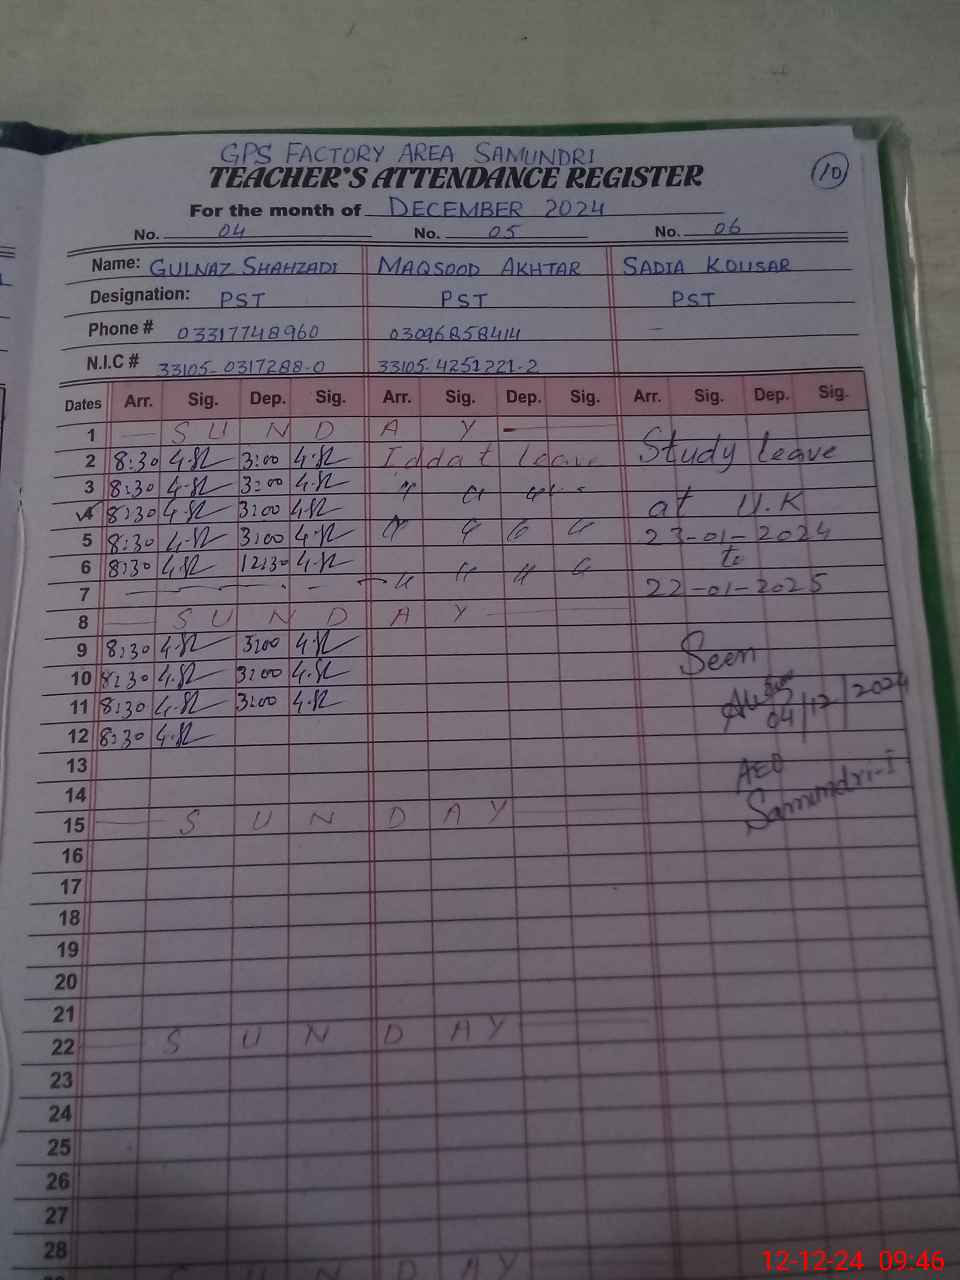 GPS FACTORY AREA SAMUNDRI
TEACHER'S ATTENDANCE REGISTER
10
For the month of DECEMBER 2024
No. 04 No. 05 No. 06
Name: GULNAZ SHAHZADI MAQSOOD AKHTAR SADIA KOUSAR
Designation: PST PST PST
Phone # 03317748960 03096858414 —
N.I.C # 33105-0317288-0 33105-4251221-2
Dates Arr. Sig. Dep. Sig. Arr. Sig. Dep. Sig. Arr. Sig. Dep. Sig.
1 — SUNDAY —
2 8:30 3:00 Iddat leave Study leave
3 8:30 3:00 " " " "
4 8:30 3:00 at U.K
5 8:30 3:00 " " " " 23-01-2024
6 8:30 12:30 " " " " to
7 22-01-2025
8 — SUNDAY —
9 8:30 3:00 Seen
10 8:30 3:00
11 8:30 3:00 04/12/2024
12 8:30
13 AEO
14 Samundri-I
15 — SUNDAY —
16
17
18
19
20
21
22 — SUNDAY —
23
24
25
26
27
28
SUNDAY
12-12-24 09:46